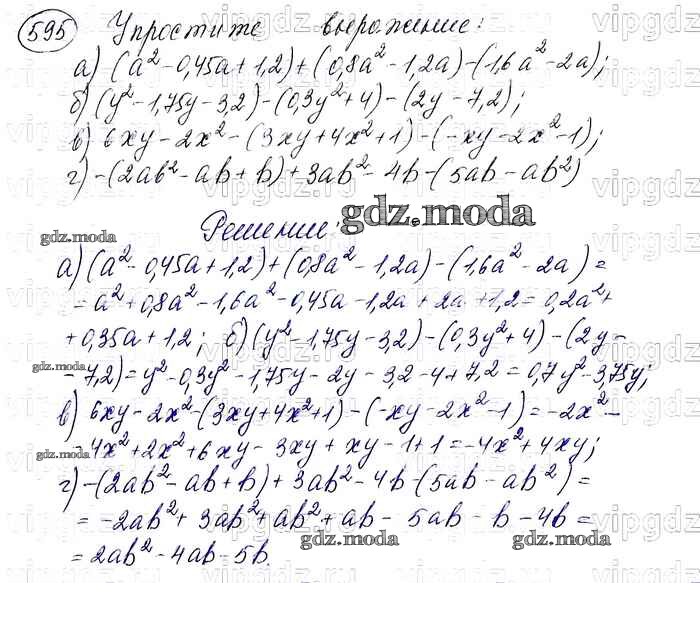 595 Упростите выражение:
а) (a² - 0,45a + 1,2) + (0,8a² - 1,2a) - (1,6a² - 2a);
б) (y² - 1,75y - 3,2) - (0,3y² + 4) - (2y - 7,2);
в) 6xy - 2x² - (3xy + 4x² + 1) - (-xy - 2x² - 1);
г) -(2ab² - ab + b) + 3ab² - 4b - (5ab - ab²)
Решение:
gdz.moda
gdz.moda
а) (a² - 0,45a + 1,2) + (0,8a² - 1,2a) - (1,6a² - 2a) =
= a² + 0,8a² - 1,6a² - 0,45a - 1,2a + 2a + 1,2 = 0,2a² +
+ 0,35a + 1,2; б) (y² - 1,75y - 3,2) - (0,3y² + 4) - (2y -
gdz.moda
- 7,2) = y² - 0,3y² - 1,75y - 2y - 3,2 - 4 + 7,2 = 0,7y² - 3,75y;
в) 6xy - 2x² - (3xy + 4x² + 1) - (-xy - 2x² - 1) = -2x² -
- 4x² + 2x² + 6xy - 3xy + xy - 1 + 1 = -4x² + 4xy;
gdz.moda
г) -(2ab² - ab + b) + 3ab² - 4b - (5ab - ab²) =
= -2ab² + 3ab² + ab² + ab - 5ab - b - 4b =
gdz.moda
gdz.moda
= 2ab² - 4ab - 5b.